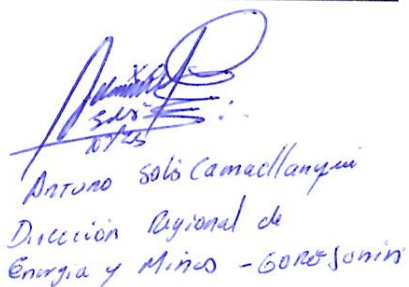 Arturo Solis Camacllanqui
Dirección Regional de
Energia y Minas - GORE Junin